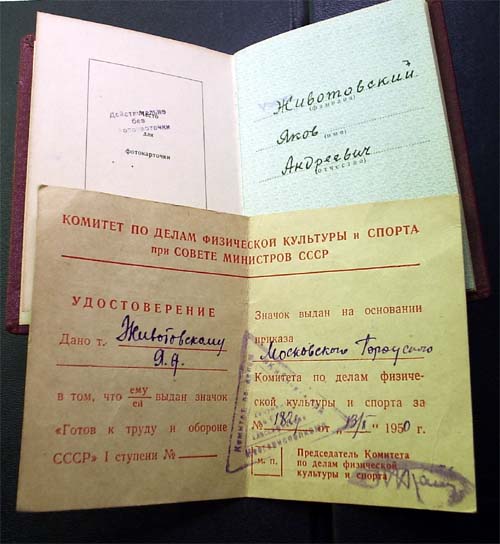 Место
для
фотокарточки
Действительно
без
фотокарточки
Животовский
(фамилия)
Яков
(имя)
Андреевич
(отчество)
КОМИТЕТ ПО ДЕЛАМ ФИЗИЧЕСКОЙ КУЛЬТУРЫ и СПОРТА
при СОВЕТЕ МИНИСТРОВ СССР
УДОСТОВЕРЕНИЕ
Дано т. Животовскому
Я.А.
в том, что ему
ей
выдан значок
«Готов к труду и обороне
СССР» I ступени №
Значок выдан на основании
приказа
Московского Городского
Комитета по делам физиче-
ской культуры и спорта за
№ 182 от "13/I" 1950 г.
м. п.
Председатель Комитета
по делам физической
культуры и спорта